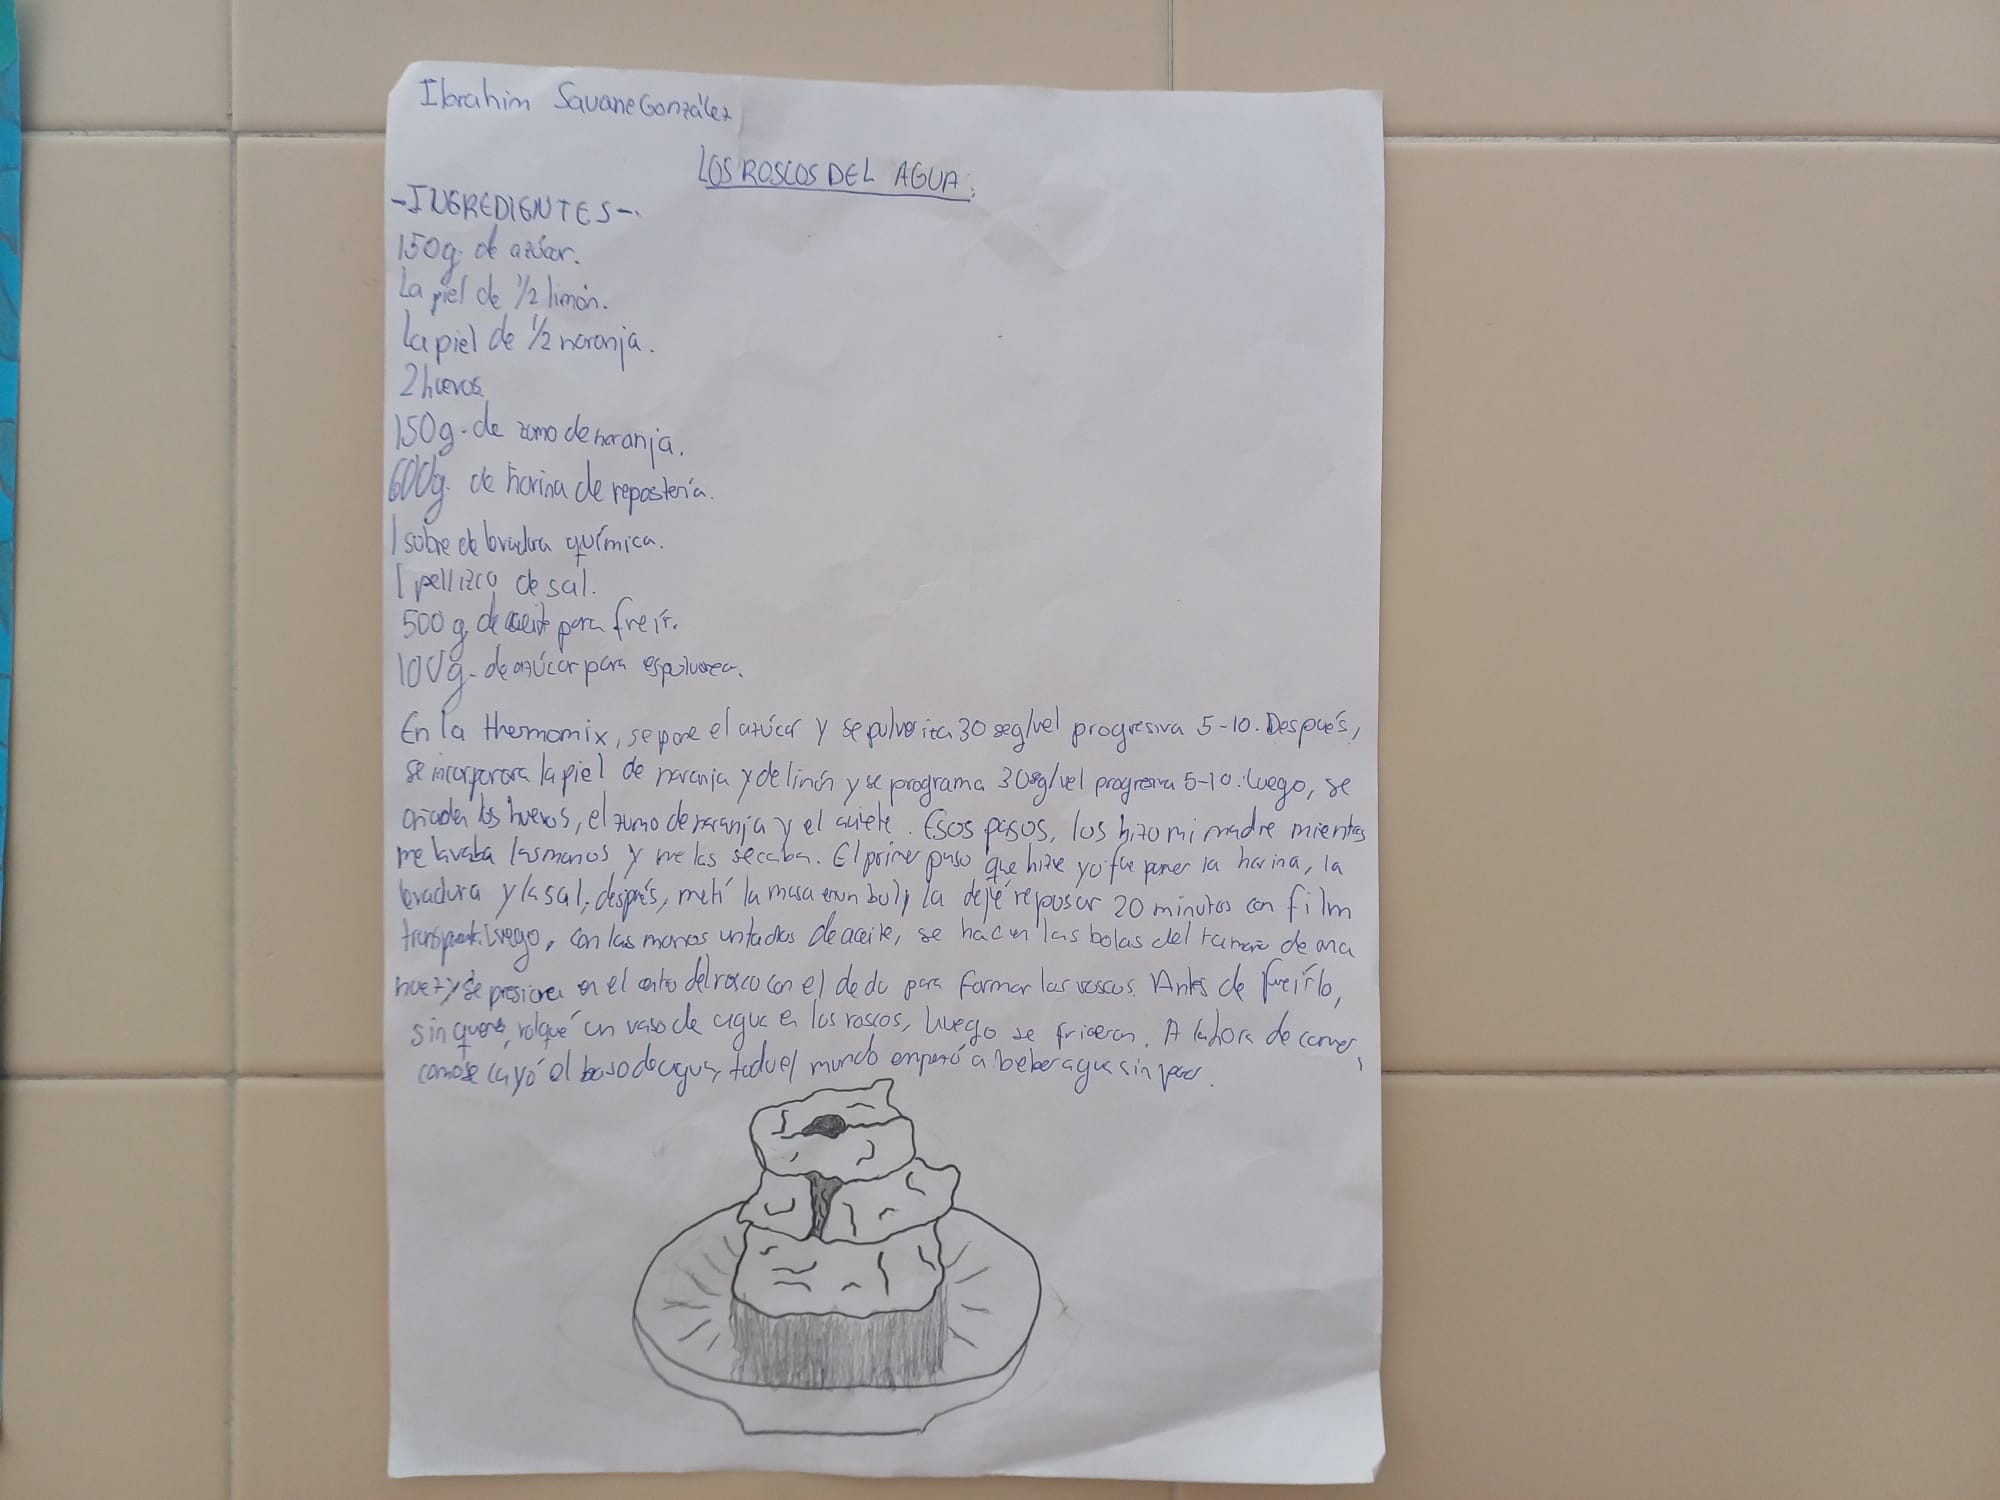 Ibrahim Savane González
LOS ROSCOS DEL AGUA:
-INGREDIENTES-.
150g. de azúcar.
La piel de 1/2 limón.
La piel de 1/2 naranja.
2 huevos.
150g. de zumo de naranja.
600g. de harina de repostería.
1 sobre de levadura química.
1 pellizco de sal.
500 g. de aceite para freír.
100g. de azúcar para espolvorea.
En la thermomix, se pone el azúcar y se pulveriza 30 seg/vel progresiva 5-10. Después,
se incorporara la piel de naranja y de limón y se programa 30sg/vel progresiva 5-10. Luego, se
añaden los huevos, el zumo de naranja y el aciete. Esos pasos, los hizo mi madre mientas
me lavaba las manos y me las secaba. El primer paso que hize yo fue poner la harina, la
levadura y la sal, después, metí la masa en un bol y la dejé reposar 20 minutos con film
transparente. Luego, con las manos untadas de aceite, se hacen las bolas del tamaño de una
nuez y se presiona en el centro del rosco con el dedo para formar los roscos. Antes de freírlo,
sin querer, volqué un vaso de agua en los roscos, luego se frieron. A la hora de comer,
como se cayó el baso de agua, todo el mundo empezó a beber agua sin parar.